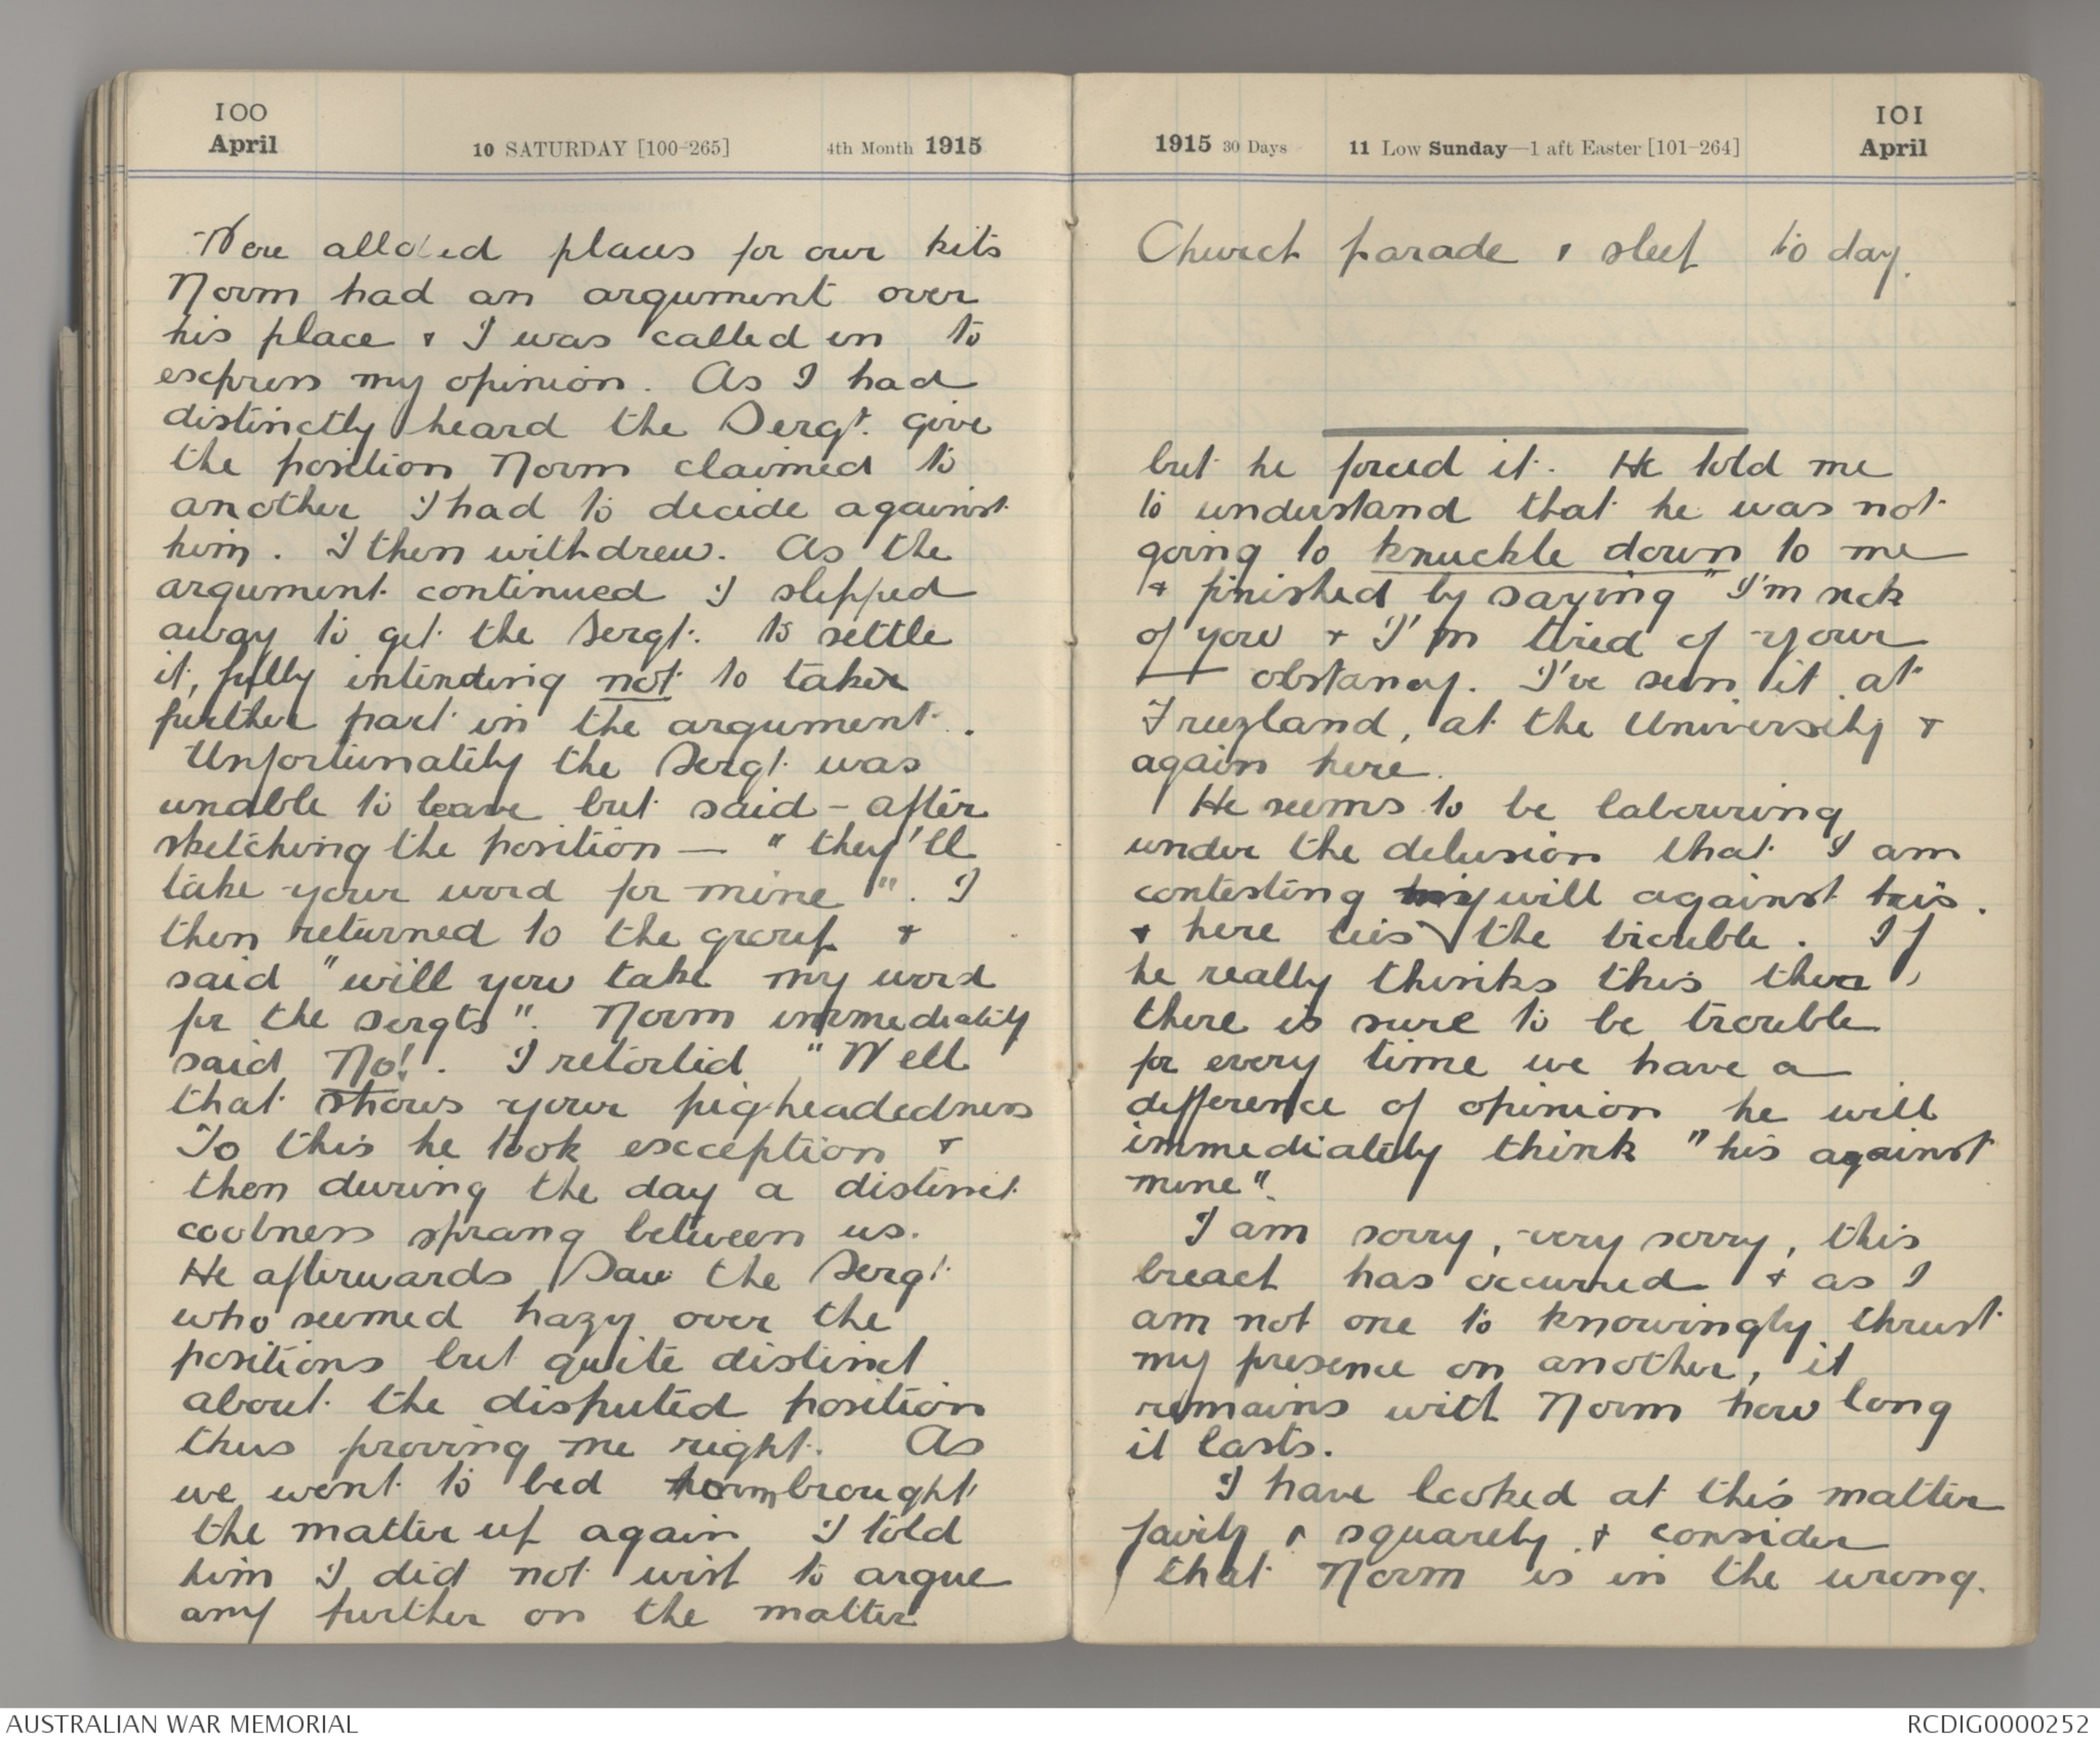 100
April
10 SATURDAY [100-265]
4th Month 1915
Were alloted places for our kits
Norm had an argument over
his place & I was called on to
express my opinion. As I had
distinctly heard the Sergt. give
the position Norm claimed to
another I had to decide against
him. I then withdrew. As the
argument continued I slipped
away to get the Sergt. to settle
it, fully intending not to take
further part in the argument.
Unfortunately the Sergt. was
unable to leave but said - after
sketching the position — "they'll
take your word for mine". I
then returned to the group &
said "will you take my word
for the sergts". Norm immediately
said No!. I retorted "Well
that shows your pigheadedness
To this he took exception &
then during the day a distinct
coolness sprang between us.
He afterwards saw the Sergt
who seemed hazy over the
positions but quite distinct
about the disputed position
thus proving me right. As
we went to bed Norm brought
the matter up again I told
him I did not wish to argue
any further on the matter
1915 30 Days
11 Low Sunday—1 aft Easter [101-264]
101
April
Church parade & sleep to day.
but he forced it. He told me
to understand that he was not
going to knuckle down to me
& finished by saying "I'm sick
of you & I'm tired of your
— obstancy. I've seen it at
Fruzland, at the University &
again here.
He seems to be labouring
under the delusion that I am
contesting my will against his.
& here lies the trouble. If
he really thinks this then,
there is sure to be trouble
for every time we have a
difference of opinion he will
immediately think "his against
mine".
I am sorry, very sorry, this
breach has occurred & as I
am not one to knowingly thrust
my presence on another, it
remains with Norm how long
it lasts.
I have looked at this matter
fairly & squarely & consider
that Norm is in the wrong.
AUSTRALIAN WAR MEMORIAL
RCDIG0000252